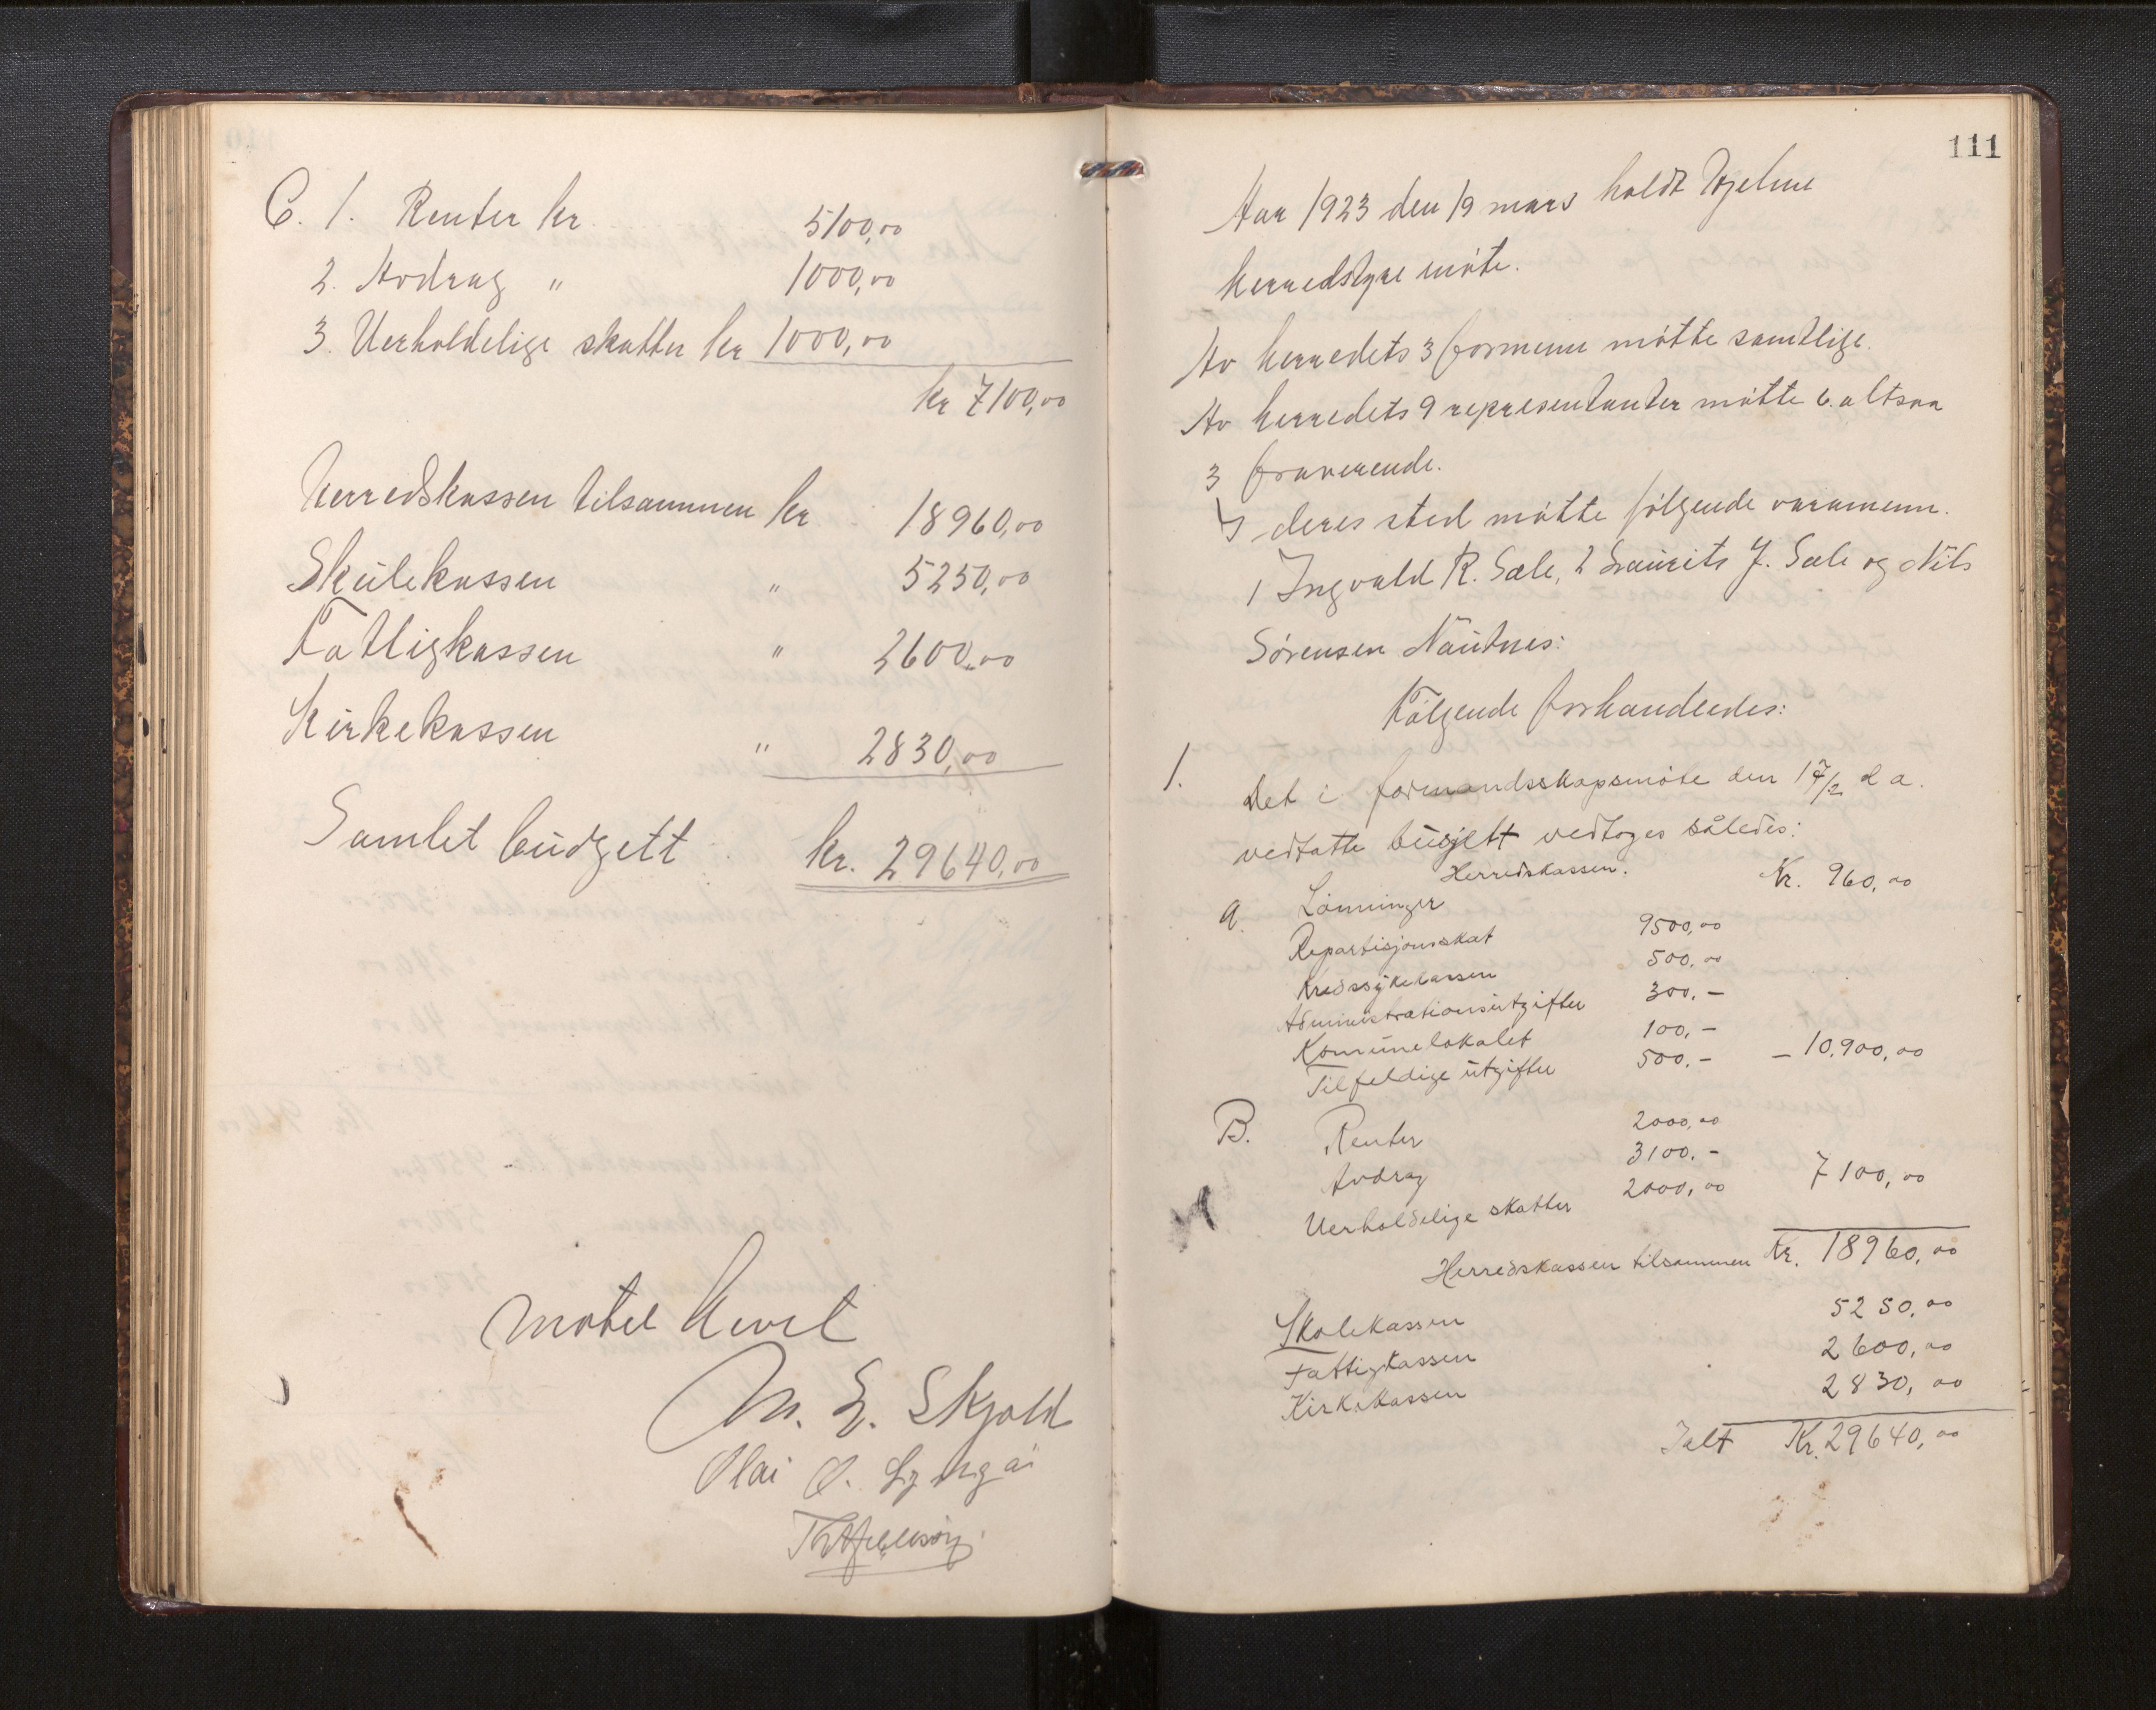 C. 1. Renter kr. 5100,00
2. Avdrag " 1000,00
3. Uerholdelige skatter kr 1000,00
kr 7100,00
Herredskassen tilsammen kr 18960,00
Skulekassen " 5250,00
Fattigkassen " 2600,00
Kirkekassen " 2830,00
Samlet budgett kr. 29640,00
Møtet hevet
M. E. Skjold
Olai O.
111
Aar 1923 den 19 mars holdt Hjelme
herredstyre møte.
Av herredets 3 formenn møtte samtlige.
Av herredets 9 representanter møtte 6. altsaa
3 fraverende.
I deres sted møtte følgende varamenn.
1 Ingvald R. Sæle, 2 Laurits J. Sæle og Nils
Sørensen Nautnes:
Følgende forhandledes:
1. Det i formandsskapsmøte den 17/2 d a.
vedtatte busjett vedtoges således:
Herredskassen.
A. Lønninger Kr. 960,00
Repartisjonsskat 9500,00
Kredssykekassen 500,00
Administrationsutgifter 300,-
Komunelokalet 100,-
Tilfeldige utgifter 500,- - 10.900,00
B. Renter 2000,00
Avdrag 3100.-
Uerholdelige skatter 2000,00 7100,00
Herredskassen tilsammen Kr. 18960,00
Skolekassen 5250,00
Fattigkassen 2600,00
Kirkekassen 2830,00
Ialt Kr. 29640,00